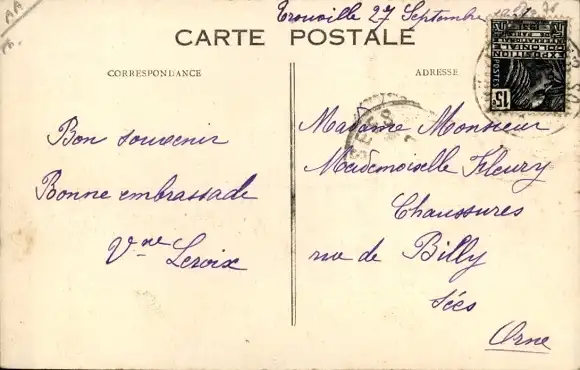 Trouville 27 Septembre
CARTE POSTALE
CORRESPONDANCE
ADRESSE
Bon souvenir
Bonne embrassade
Vve Leroix
Madame Monsieur
Mademoiselle Fleury
Chaussures
rue de Billy
Sées
Orne
SEES
EXPOSITION
COLONIALE
INTERNATIONALE
POSTES
15c